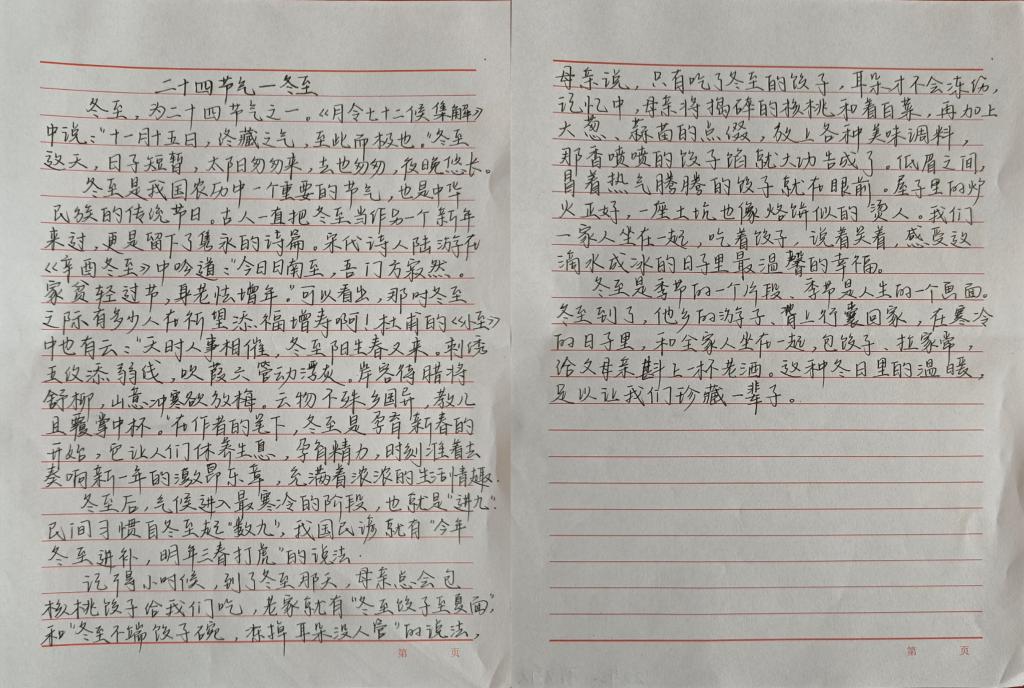 二十四节气一冬至
冬至，为二十四节气之一。《月令七十二候集解》
中说："十一月十五日，终藏之气，至此而极也。"冬至
这天，日子短暂，太阳匆匆来，去也匆匆，夜晚悠长。
冬至是我国农历中一个重要的节气，也是中华
民族的传统节日。古人一直把冬至当作另一个新年
来过，更是留下了隽永的诗篇。宋代诗人陆游在
《辛酉冬至》中吟道："今日日南至，吾门方寂然。
家贫轻过节，身老怯增年。"可以看出，那时冬至
之际有多少人在祈望添福增寿啊！杜甫的《小至》
中也有云："天时人事相催，冬至阳生春又来。刺绣
五纹添弱线，吹葭六管动浮灰。岸容待腊将
舒柳，山意冲寒欲放梅。云物不殊乡国异，教儿
且覆掌中杯。"在作者的笔下，冬至是孕育新春的
开始，它让人们休养生息，孕育精力，时刻准备着去
奏响新一年的激昂乐章，充满着浓浓的生活情趣。
冬至后，气候进入最寒冷的阶段，也就是"进九"。
民间习惯自冬至起"数九"，我国民谚就有"今年
冬至进补，明年三春打虎"的说法.
记得小时候，到了冬至那天，母亲总会包
核桃饺子给我们吃，老家就有"冬至饺子至夏面"，
和"冬至不端饺子碗，冻掉耳朵没人管"的说法，
母亲说，只有吃了冬至的饺子，耳朵才不会冻伤，
记忆中，母亲将捣碎的核桃和着白菜，再加上
大葱、蒜苗的点缀，放上各种美味调料，
那香喷喷的饺子馅就大功告成了。低眉之间，
冒着热气腾腾的饺子就在眼前。屋子里的炉
火正好，一座土坑也像烙饼似的烫人。我们
一家人坐在一起，吃着饺子，说着笑着，感受这
滴水成冰的日子里最温馨的幸福。
冬至是季节的一个片段、季节是人生的一个画面。
冬至到了，他乡的游子、背上行囊回家，在寒冷
的日子里，和全家人坐在一起，包饺子、拉家常，
给父母亲斟上一杯老酒。这种冬日里的温暖，
足以让我们珍藏一辈子。
第 页
第 页